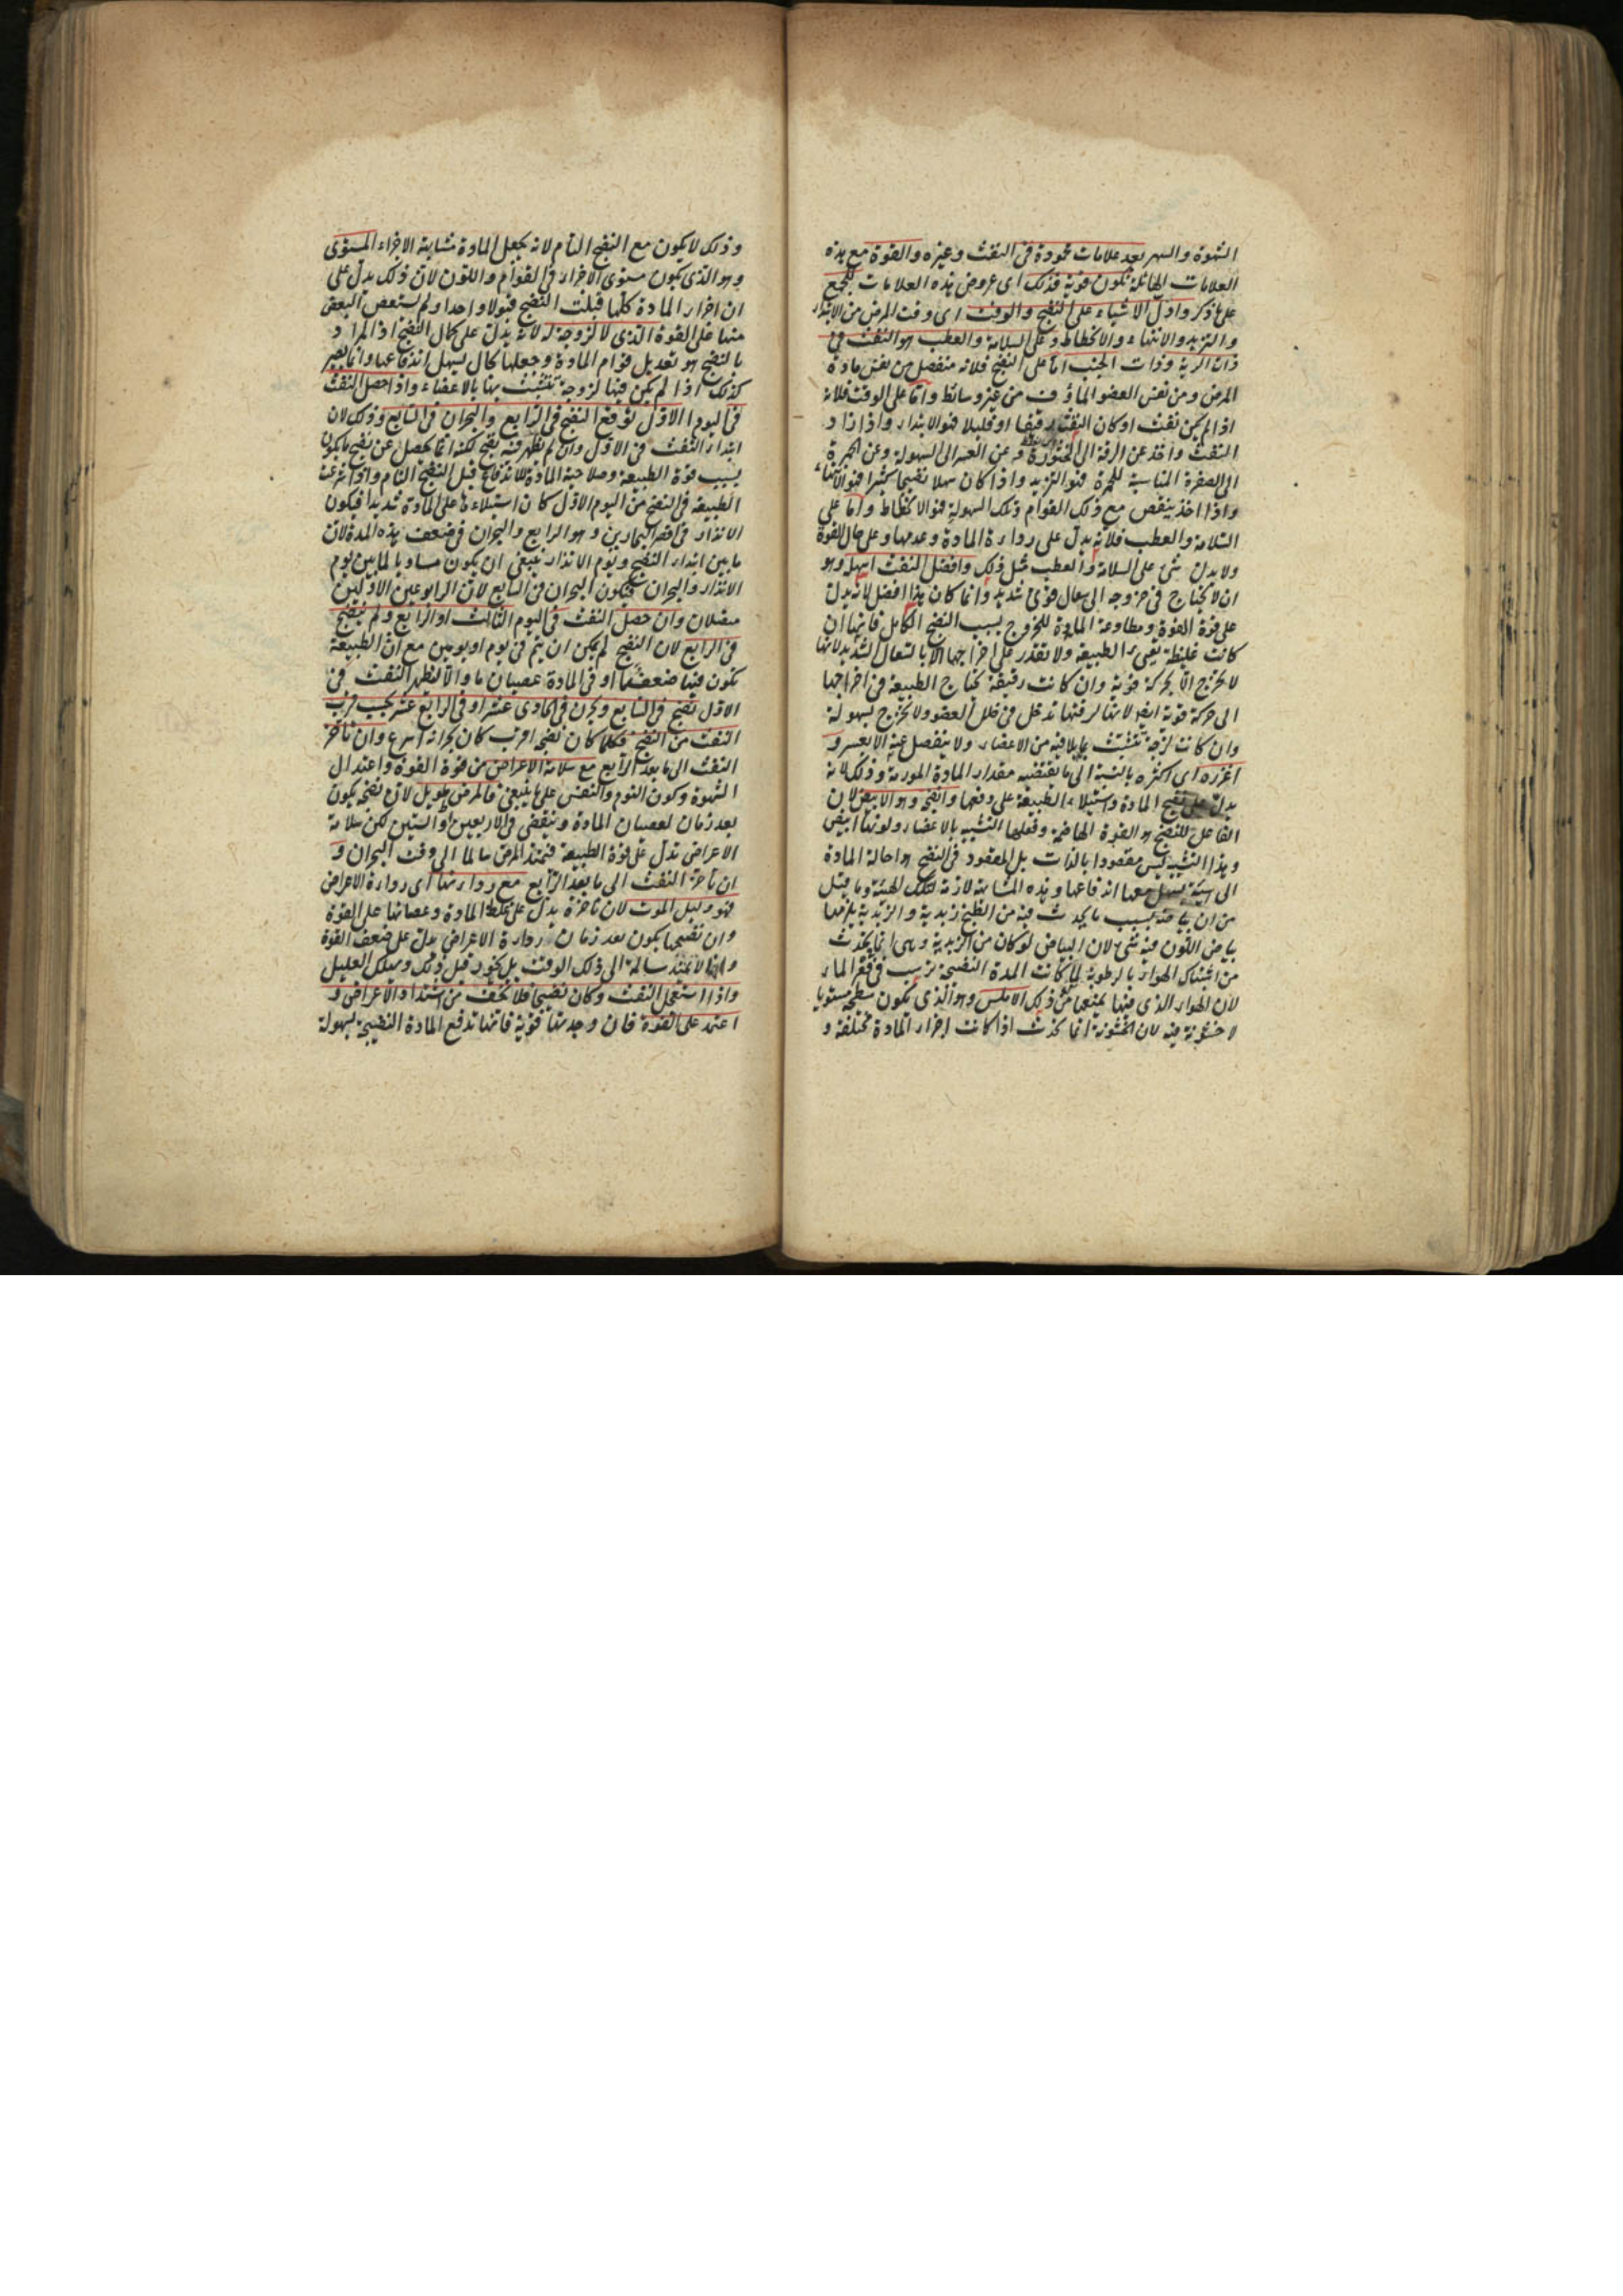 الشهوة والسهر بعد علامات محمودة فى النفث وغيره والقوة مع هذه
العلامات الهائلة تكون قوية فذلك اى عروض هذه العلامات للجمع
على ما ذكر وادل الاشياء على النضج والوقت اى وقت المرض من الابتداء
والتزيد والانتهاء والانحطاط وعلى السلامة والعطب هو النفث فى
ذات الرية وذات الجنب اما على النضج فلانه منفصل من نفس مادة
المرض ومن نفس العضو الماؤف من غير وسائط واما على الوقت فلانه
اذا لم يكن نفث او كان النفث رقيقا او قليلا فهو الابتداء واذا زاد
النفث واخذ عن الرقة الى الخثورة وعن العسر الى السهولة وعن الحمرة
الى الصفرة المناسبة للحمرة فهو التزيد واذا كان سهلا نضيجا كثيرا فهو الانتهاء
واذا اخذ ينقص مع ذلك القوام وتلك السهولة فهو الانحطاط واما على
السلامة والعطب فلانه يدل على رداءة المادة وعدمها وعلى حال القوة
ولا يدل شئ على السلامة والعطب مثل ذلك وافضل النفث اسهله وهو
ان لا يحتاج فى خروجه الى سعال قوى شديد وانما كان هذا افضل لانه يدل
على قوة القوة ومطاوعة المادة للخروج بسبب النضج الكامل فانها ان
كانت غليظة تعيى الطبيعة ولا تقدر على اخراجها الا بالسعال الشديد لانها
لا تخرج الا بحركة قوية وان كانت رقيقة تحتاج الطبيعة فى اخراجها
الى حركة قوية ايضا لانها لرقتها تدخل فى خلل العضو ولا تخرج بسهولة
وان كانت لزجة تتشبث بما يلاقيه من الاعضاء ولا ينفصل عنه الا بعسر و
اغزره اى اكثره بالنسبة الى ما يقتضيه مقدار المادة المورمة وذلك لانه
يدل على نضج المادة واستيلاء الطبيعة على دفعها وانضجه وهو الابيض لان
الفاعل للنضج هو القوة الهاضمة وفعلها التشبيه بالاعضاء ولونها ابيض
وهذا التشبيه ليس مقصودا بالذات بل المقصود فى النضج هو احالة المادة
الى هيئة يسهل معها اندفاعها وهذه المشابهة لازمة لتلك الهيئة وما قيل
من ان بياضه بسبب ما يحدث فيه من الطبخ زبدية والزبدية يلزمها
بياض اللون فيه شئ لان البياض لو كان من الزبدية وهى انما يحدث
من اشتباك الهواء بالرطوبة لما كانت المدة النضيجة ترسب فى قعر الماء
لان الهواء الذى فيها يمنعها من ذلك الاملس وهو الذى يكون سطحه مستويا
لا خشونة فيه لان الخشونة انما تحدث اذا كانت اجزاء المادة مختلفة و
وذلك لا يكون مع النضج التام لانه يجعل المادة متشابهة الاجزاء المستوى
وهو الذى يكون مستوى الاجزاء فى القوام واللون لان ذلك يدل على
ان اجزاء المادة كلها قبلت النضج قبولا واحدا ولم يستعص البعض
منها على القوة الذى لا لزوجة له لانه يدل على كمال النضج اذ المراد
بالنضج هو تعديل قوام المادة وجعلها بحال يسهل اندفاعها وانما يصير
كذلك اذا لم يكن فيها لزوجة تتشبث بها بالاعضاء واذا حصل النفث
فى اليوم الاول توقع النضج فى الرابع والبحران فى السابع وذلك لان
ابتداء النفث فى الاول وان لم يظهر فيه نضج لكنه انما يحصل عن نضج ما يكون
بسبب قوة الطبيعة وصلاحية المادة للاندفاع قبل النضج التام واذا شرعت
الطبيعة فى النضج من اليوم الاول كان استيلاءها على المادة شديدا فيكون
الانذار فى اقصر البحارين وهو الرابع والبحران فى ضعف هذه المدة لان
ما بين ابتداء النضج ويوم الانذار ينبغى ان يكون مساويا لما بين يوم
الانذار والبحران فيكون البحران فى السابع لان الرابوعين الاولين
متصلان وان حصل النفث فى اليوم الثالث او الرابع ولم ينضج
فى الرابع لان النضج لم يمكن ان يتم فى يوم او يومين مع ان الطبيعة
تكون فيها ضعف ما او فى المادة عصيان ما والا لظهر النفث فى
الاول نضج فى السابع وبحرن فى الحادى عشر او فى الرابع عشر بحسب قرب
النفث من النضج فكلما كان نضجه اقرب كان بحرانه اسرع وان تاخر
النفث الى ما بعد الرابع مع سلامة الاعراض من قوة القوة واعتدال
الشهوة وكون النوم والنفس على ما ينبغى فالمرض طويل لان نضجه يكون
بعد زمان لعصيان المادة وينقضى فى الاربعين او الستين لكن سلامة
الاعراض تدل على قوة الطبيعة فيمتد المرض سالما الى وقت البحران و
ان تاخر النفث الى ما بعد الرابع مع رداءتها اى رداءة الاعراض
فهو دليل الموت لان تاخره يدل على غلظ المادة وعصيانها على القوة
وان نضجها يكون بعد زمان ورداءة الاعراض يدل على ضعف القوة
وانها لا تمتد سالمة الى ذلك الوقت بل تخور قبل ذلك ويهلك العليل
واذا استعجل النفث وكان نضيجا فلا تخف من اشتداد الاعراض و
اعتمد على القوة فان وجدتها قوية فانها تدفع المادة النضيجة بسهولة